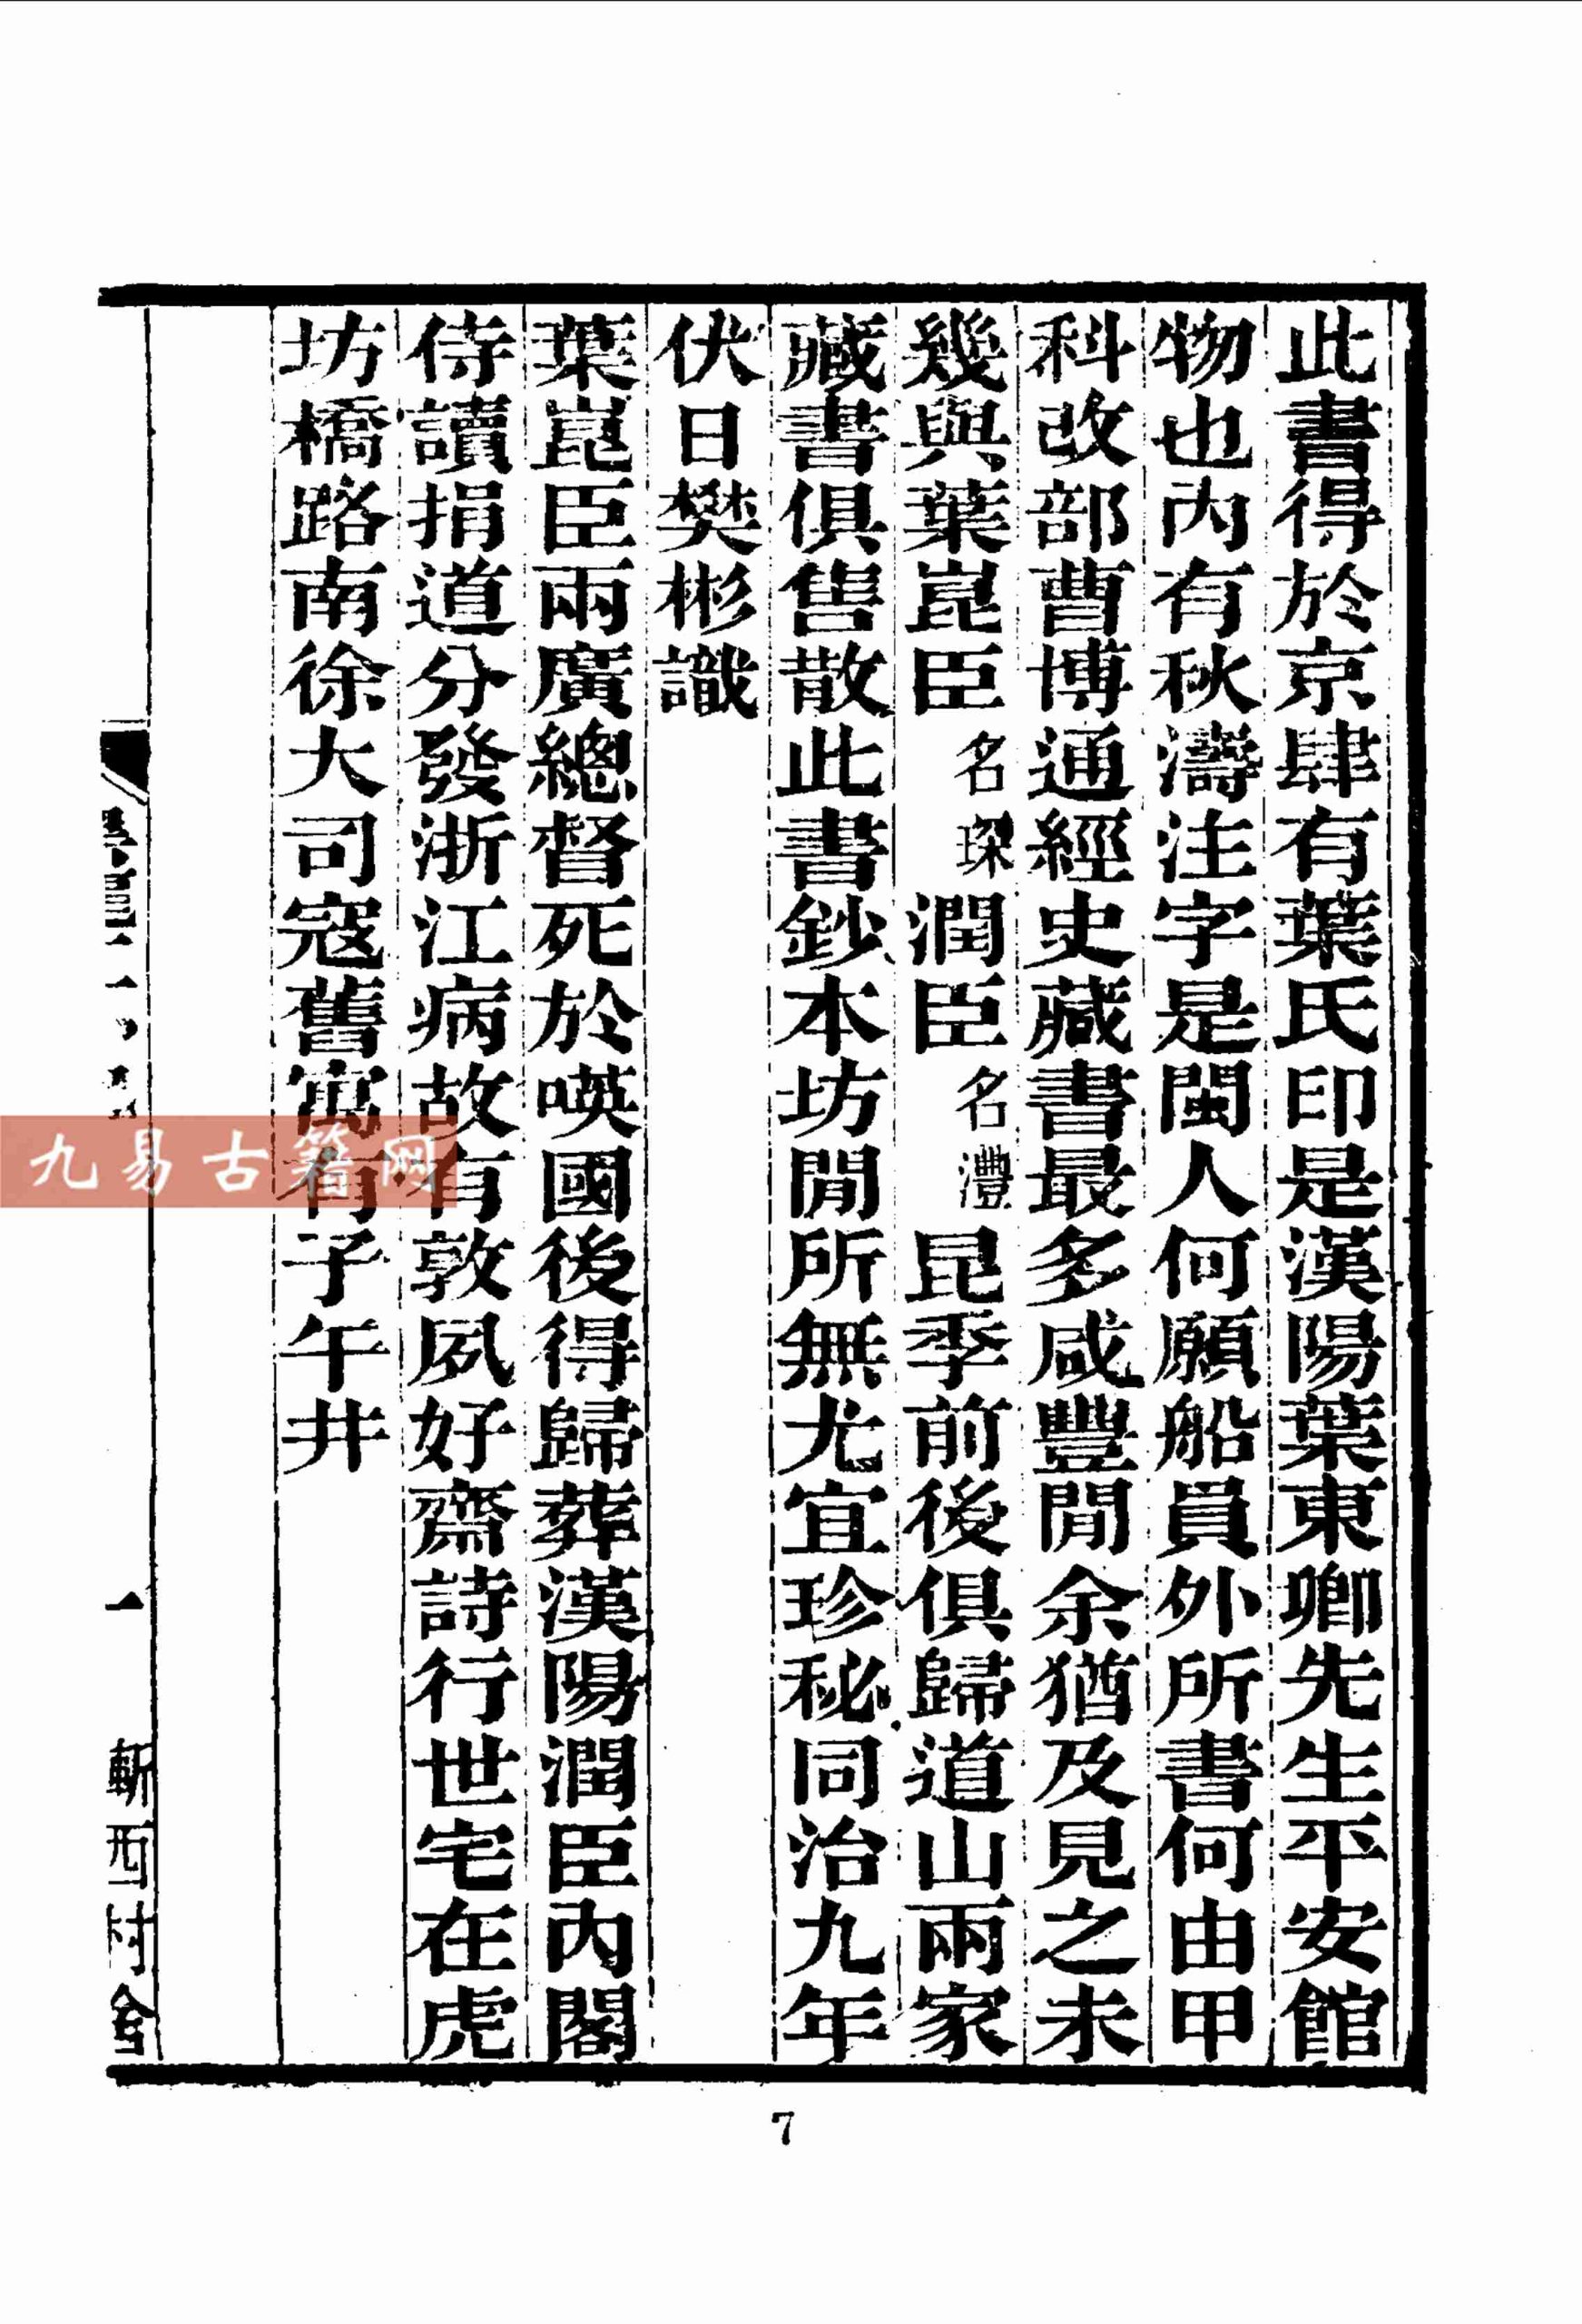 此書得於京肆有葉氏印是漢陽葉東卿先生平安館
物也內有秋濤注字是閩人何願船員外所書何由甲
科改部曹博通經史藏書最多咸豐閒余猶及見之未
幾與葉崑臣名琛潤臣名灃昆季前後俱歸道山兩家
藏書俱售散此書鈔本坊閒所無尤宜珍秘同治九年
伏日樊彬識
葉崑臣兩廣總督死於暎國後得歸葬漢陽潤臣內閣
侍讀捐道分發浙江病故有敦夙好齋詩行世宅在虎
坊橋路南徐大司寇舊寓有子午井
一
漸西村舍
九易古籍网
7